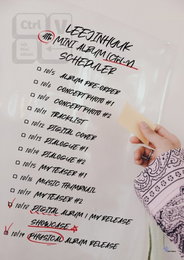 Ctrl V
LEEJINHYUK
4th MINI ALBUM [CTRL+V]
SCHEDULER
10/5 ALBUM PRE-ORDER
10/6 CONCEPT PHOTO #1
10/7 CONCEPT PHOTO #2
10/8 TRACKLIST
10/12 DIGITAL COVER
10/13 DIALOGUE #1
10/14 DIALOGUE #2
10/15 MV TEASER #1
10/15 MUSIC THUMBNAIL
10/17 MV TEASER #2
10/18 DIGITAL ALBUM / MV RELEASE
SHOWCASE
10/19 PHYSICAL ALBUM RELEASE